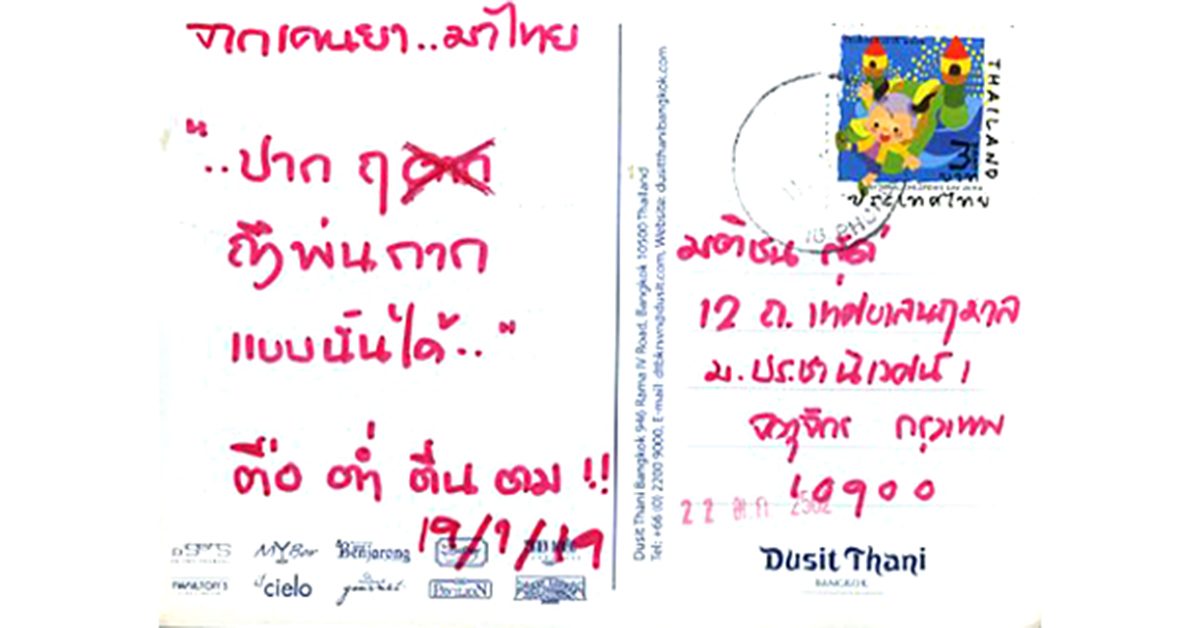 จากเคนยา..มาไทย
"..ปาก ฤ
ถึงพ่นกาก
แบบนั้นได้.."
ตื่อ ต่ำ ตีน ตม !!
19/9/19
MYBar
Benjarong
il cielo
gourmet
PAVILION
HAMILTON'S
Dusit Thani Bangkok 946 Rama IV Road, Bangkok 10500 Thailand
Tel: +66 (0) 2200 9000, E-mail: dtbkrsvn@dusit.com, Website: dusitthanibangkok.com
THAILAND
3
บาท
ประเทศไทย
มติชน
12 ถ. เทศบาลนฤมาล
ม.ประชานิเวศน์ 1
จตุจักร กรุงเทพ
10900
22 ต.ค. 2562
Dusit Thani
BANGKOK